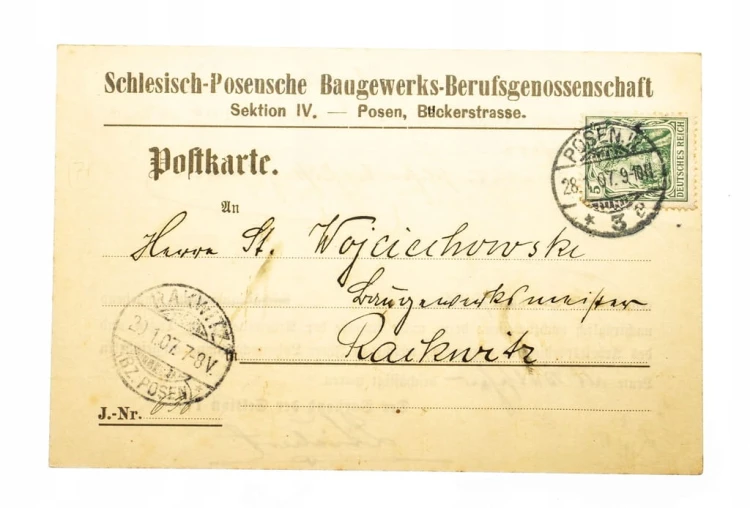 Schlesisch-Posensche Baugewerks-Berufsgenossenschaft
Sektion IV. — Posen, Bückerstrasse.
Postkarte.
DEUTSCHES REICH
POSEN
28. 07. 9-10N
* 3 a
An
Herrn St. Wojciechowski
Baugewerksmeister
Rackwitz
RAKWITZ
07. 7-8V.
(BZ. POSEN)
J.-Nr.